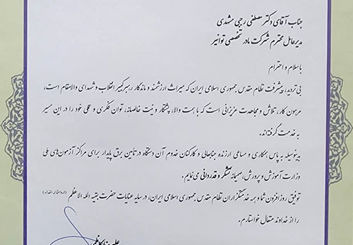 جناب آقای دکتر مصطفی رجبی مشهدی
مدیرعامل محترم شرکت مادر تخصصی توانیر
با سلام و احترام
بی‌تردید، پیشرفت نظام مقدس جمهوری اسلامی ایران که میراث ارزشمند و ماندگار رهبر کبیر انقلاب و شهدای والامقام است،
مرهون کار، تلاش و مجاهدت عزیزانی است که با همت والا، پشتکار و نیت خالصانه، توان فکری و عملی خود را در این مسیر
به خدمت گرفته‌اند.
بدینوسیله به پاس همکاری و مساعی ارزنده جنابعالی و کارکنان خدوم آن دستگاه در تأمین برق پایدار برای مراکز آزمون‌های ملی
وزارت آموزش و پرورش، صمیمانه تشکر و قدردانی می‌نمایم.
توفیق روزافزون شما و همه خدمتگزاران نظام مقدس جمهوری اسلامی ایران، در سایه عنایات حضرت بقیه الله الاعظم
را از خداوند متعال خواستارم.